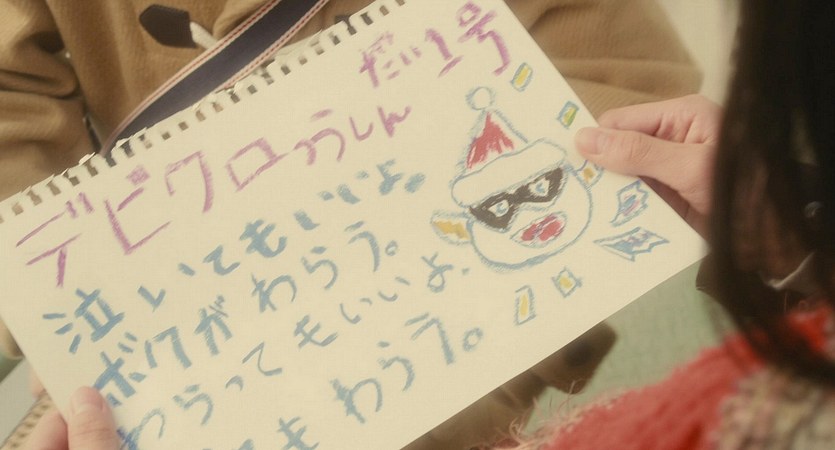 デビクロつうしん だい1号
泣いてもいいよ。
ボクがわらう。
わらってもいいよ.
てもわらう。